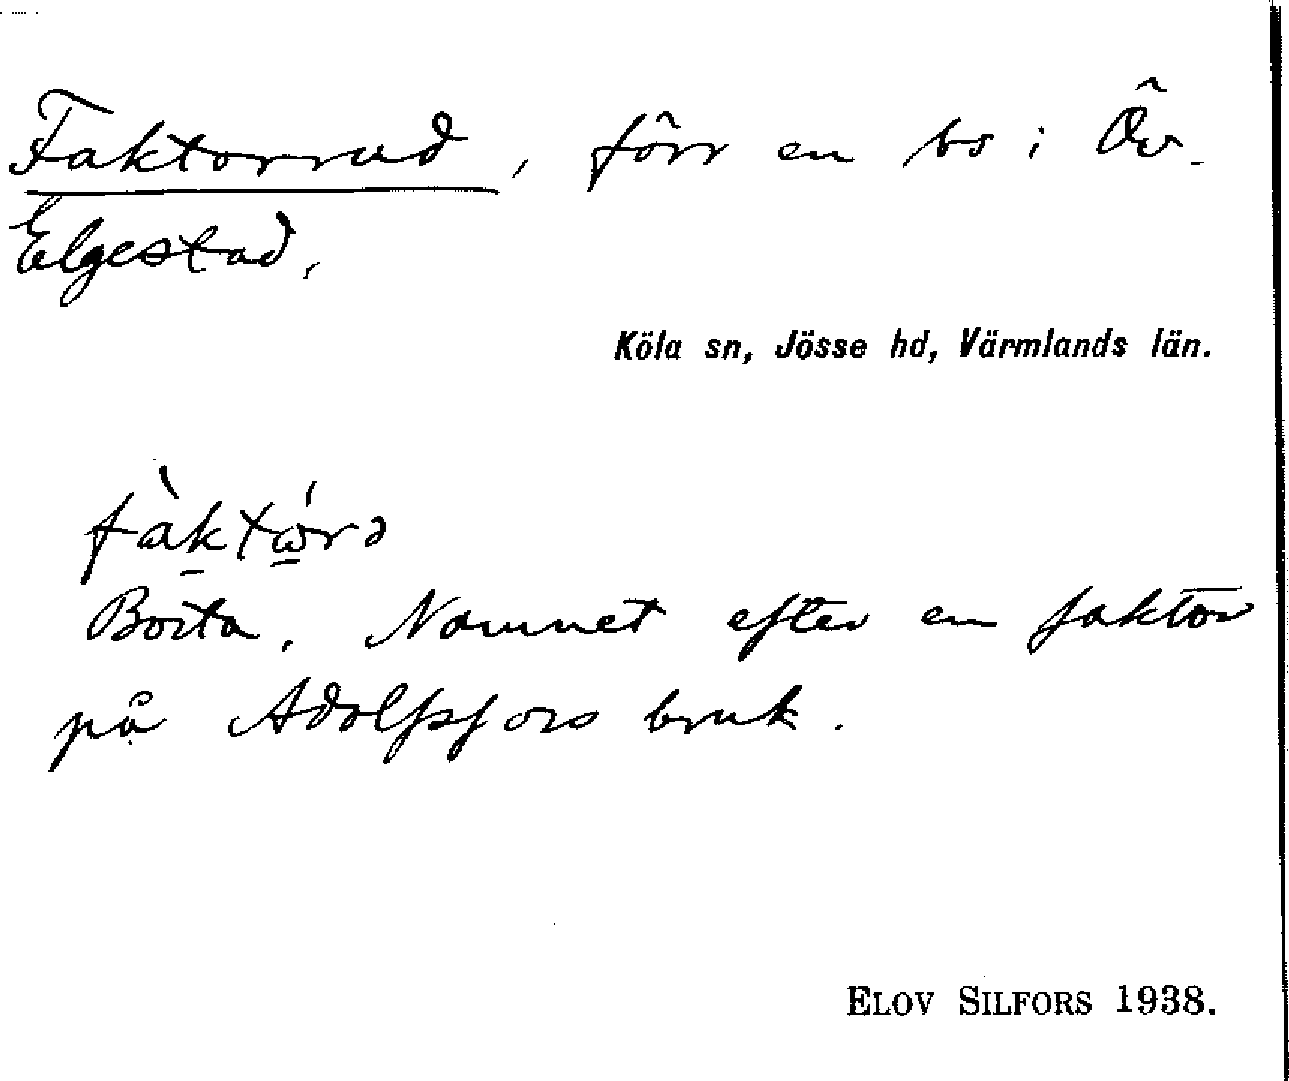 Faktorrud, förr en bs i Öv.
Elgestad.
Köla sn, Jösse hd, Värmlands län.
Borta. Namnet efter en faktor
på Adolfsfors bruk.
ELOV SILFORS 1938.